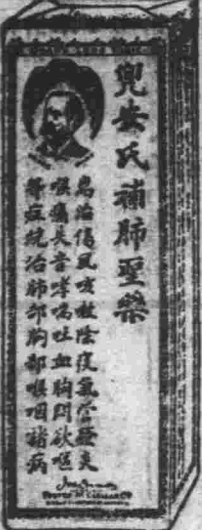 兜安氏補肺聖藥
專治傷風咳嗽陰痰氣管發炎
喉痛長音哮喘吐血胸悶欲嘔
等症統治肺部胸部喉咽諸病